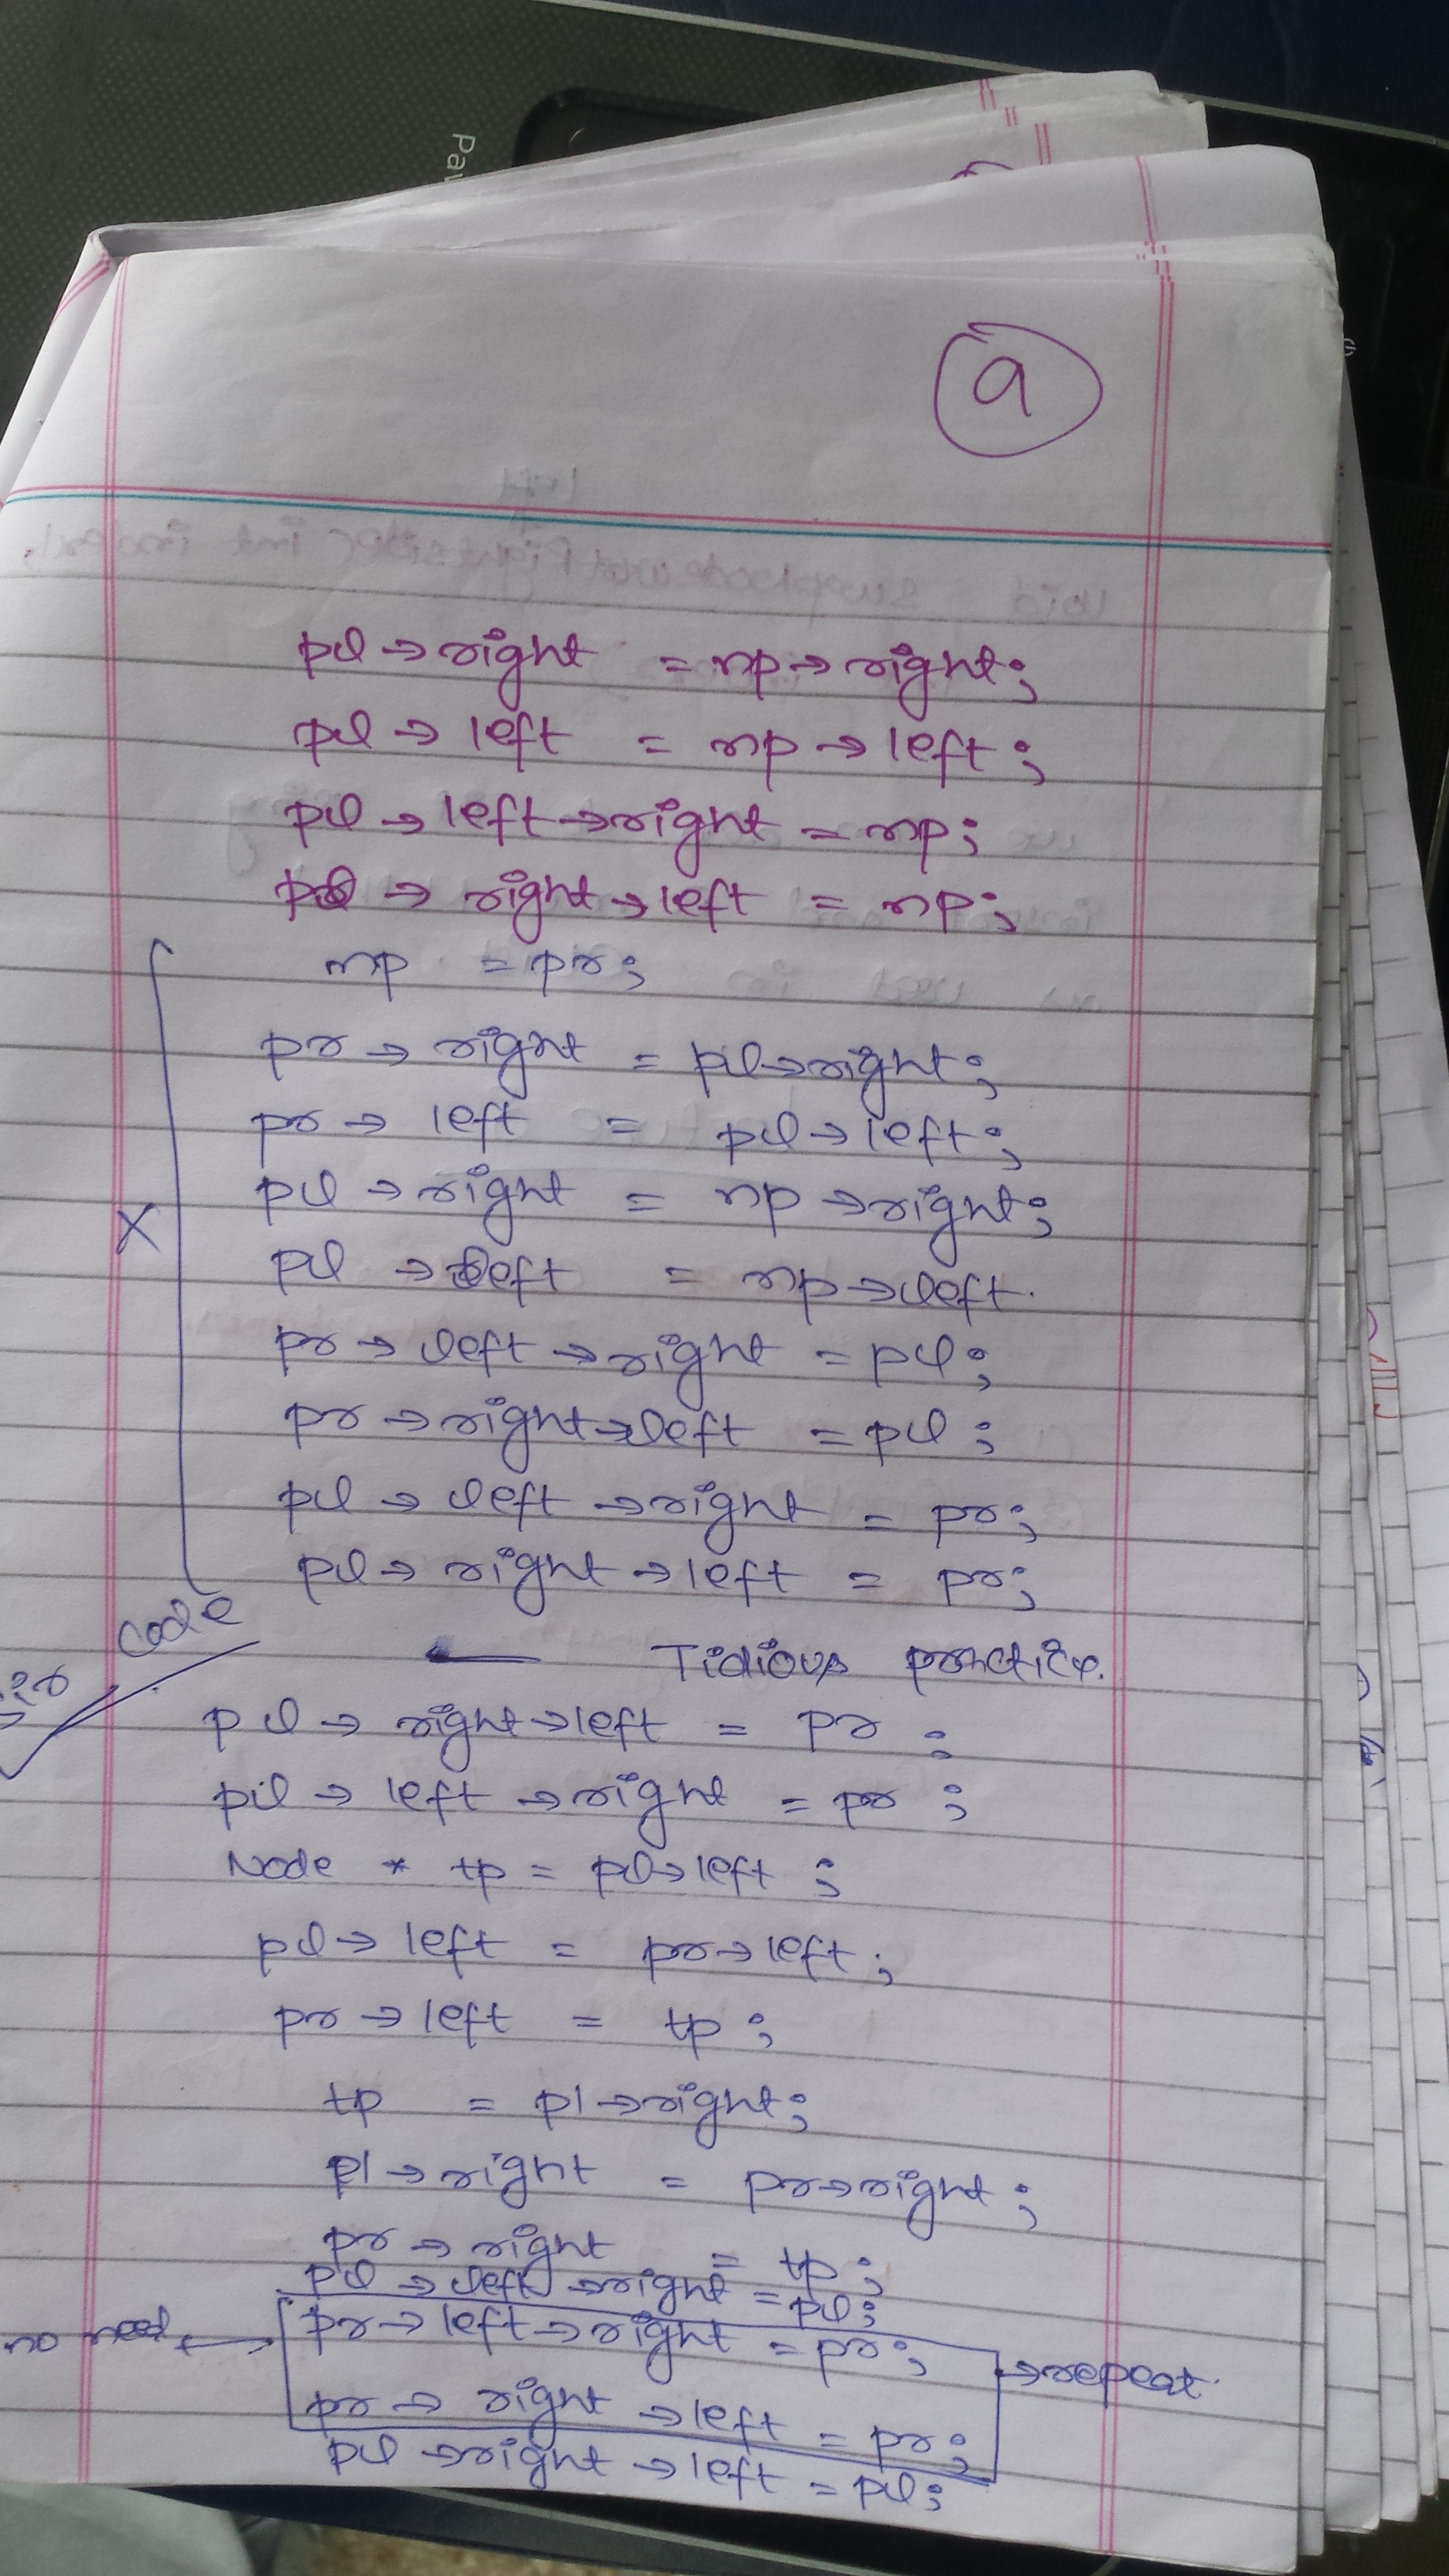 Pav
a
pl → right = np → right;
pl → left = np → left;
pl → left → right = np;
pl → right → left = np;
np = pr;
pr → right = pl → right;
pr → left = pl → left;
pl → right = np → right;
X
pl → left = np → left.
pr → left → right = pl;
pr → right → left = pl;
pl → left → right = pr;
pl → right → left = pr;
code
← Tidious practice.
pl → right → left = pr;
pl → left → right = pr;
Node * tp = pl → left;
pl → left = pr → left;
pr → left = tp;
tp = pl → right;
pl → right = pr → right;
pr → right = tp;
pl → left → right = pl;
no need ← pr → left → right = pr; → repeat.
pr → right → left = pr;
pl → right → left = pl;